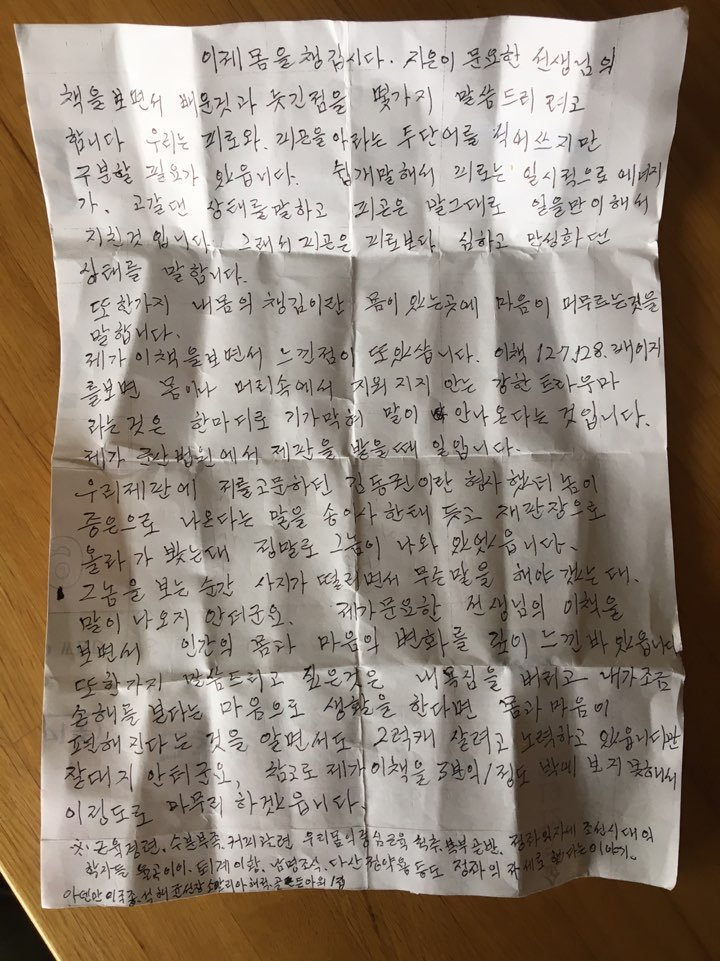 이제 몸을 챙깁시다. 지은이 문요한 선생님의
책을보면서 배운것과 늣긴점을 몇가지 말씀드리려고
합니다 우리는 피로와. 피곤을아라는 두단어를 석어쓰지만
구분할 필요가 있읍니다. 쉽게말해서 피로는 일시적으로 에너지
가. 고갈댄 상태를말하고 피곤은 말그대로 일을만이해서
치친것 입니다. 그래서 피곤은 피로보다 심하고 만성화댄
상태를 말합니다.
또한가지 내몸의 챙김이란 몸이 있는곳에 마음이 머무르는것을
말합니다.
제가이책을보면서 느낀점이 또있습니다. 이책 127,128.패이지
를보면 몸이나 머리속에서 지워지지 안는 강한트라우마
라는것은 한마디로 기가막혀 말이 안나온다는 것입니다.
제가 군산법원에서 제판을 받을때 일입니다.
우리제판에 저를고문하던 김동권이란 형사했던놈이
증은으로 나온다는 말을 송이사한태 듯고 재판장으로
올라가 봣는대 정말로 그놈이 나와 있었읍니다.
그놈을 보는순간 사지가떨리면서 무슨말을 해야갯는대.
말이나오지 안터군요. 제가문요한 선생님의 이책을
보면서 인간의 몸과 마음의 변화를 깊이 느낀바 있읍니다
또한가지 말씀드리고 싶은것은 내욕심을 버리고 내가조금
손해를 본다는 마음으로 생활을한다면 몸과마음이
편해진다는 것을 알면서도 그럭캐 살려고 노력하고 있읍니다만
잘대지 안터군요, 참고로 제가이책을 3분의1정도 박에 보지못해서
이정도로 마무리 하겠읍니다.
근육정련. 수분부족.커피관련 우리몸의중심근육 척추.복부골반. 정좌의자세 조선시대의
학자들 율곡이이. 퇴계이황. 남명조식. 다산정약용등도 정좌의 자세로 했다는이야기.
아덴만 이국종. 석해균선장 소말리아해적.